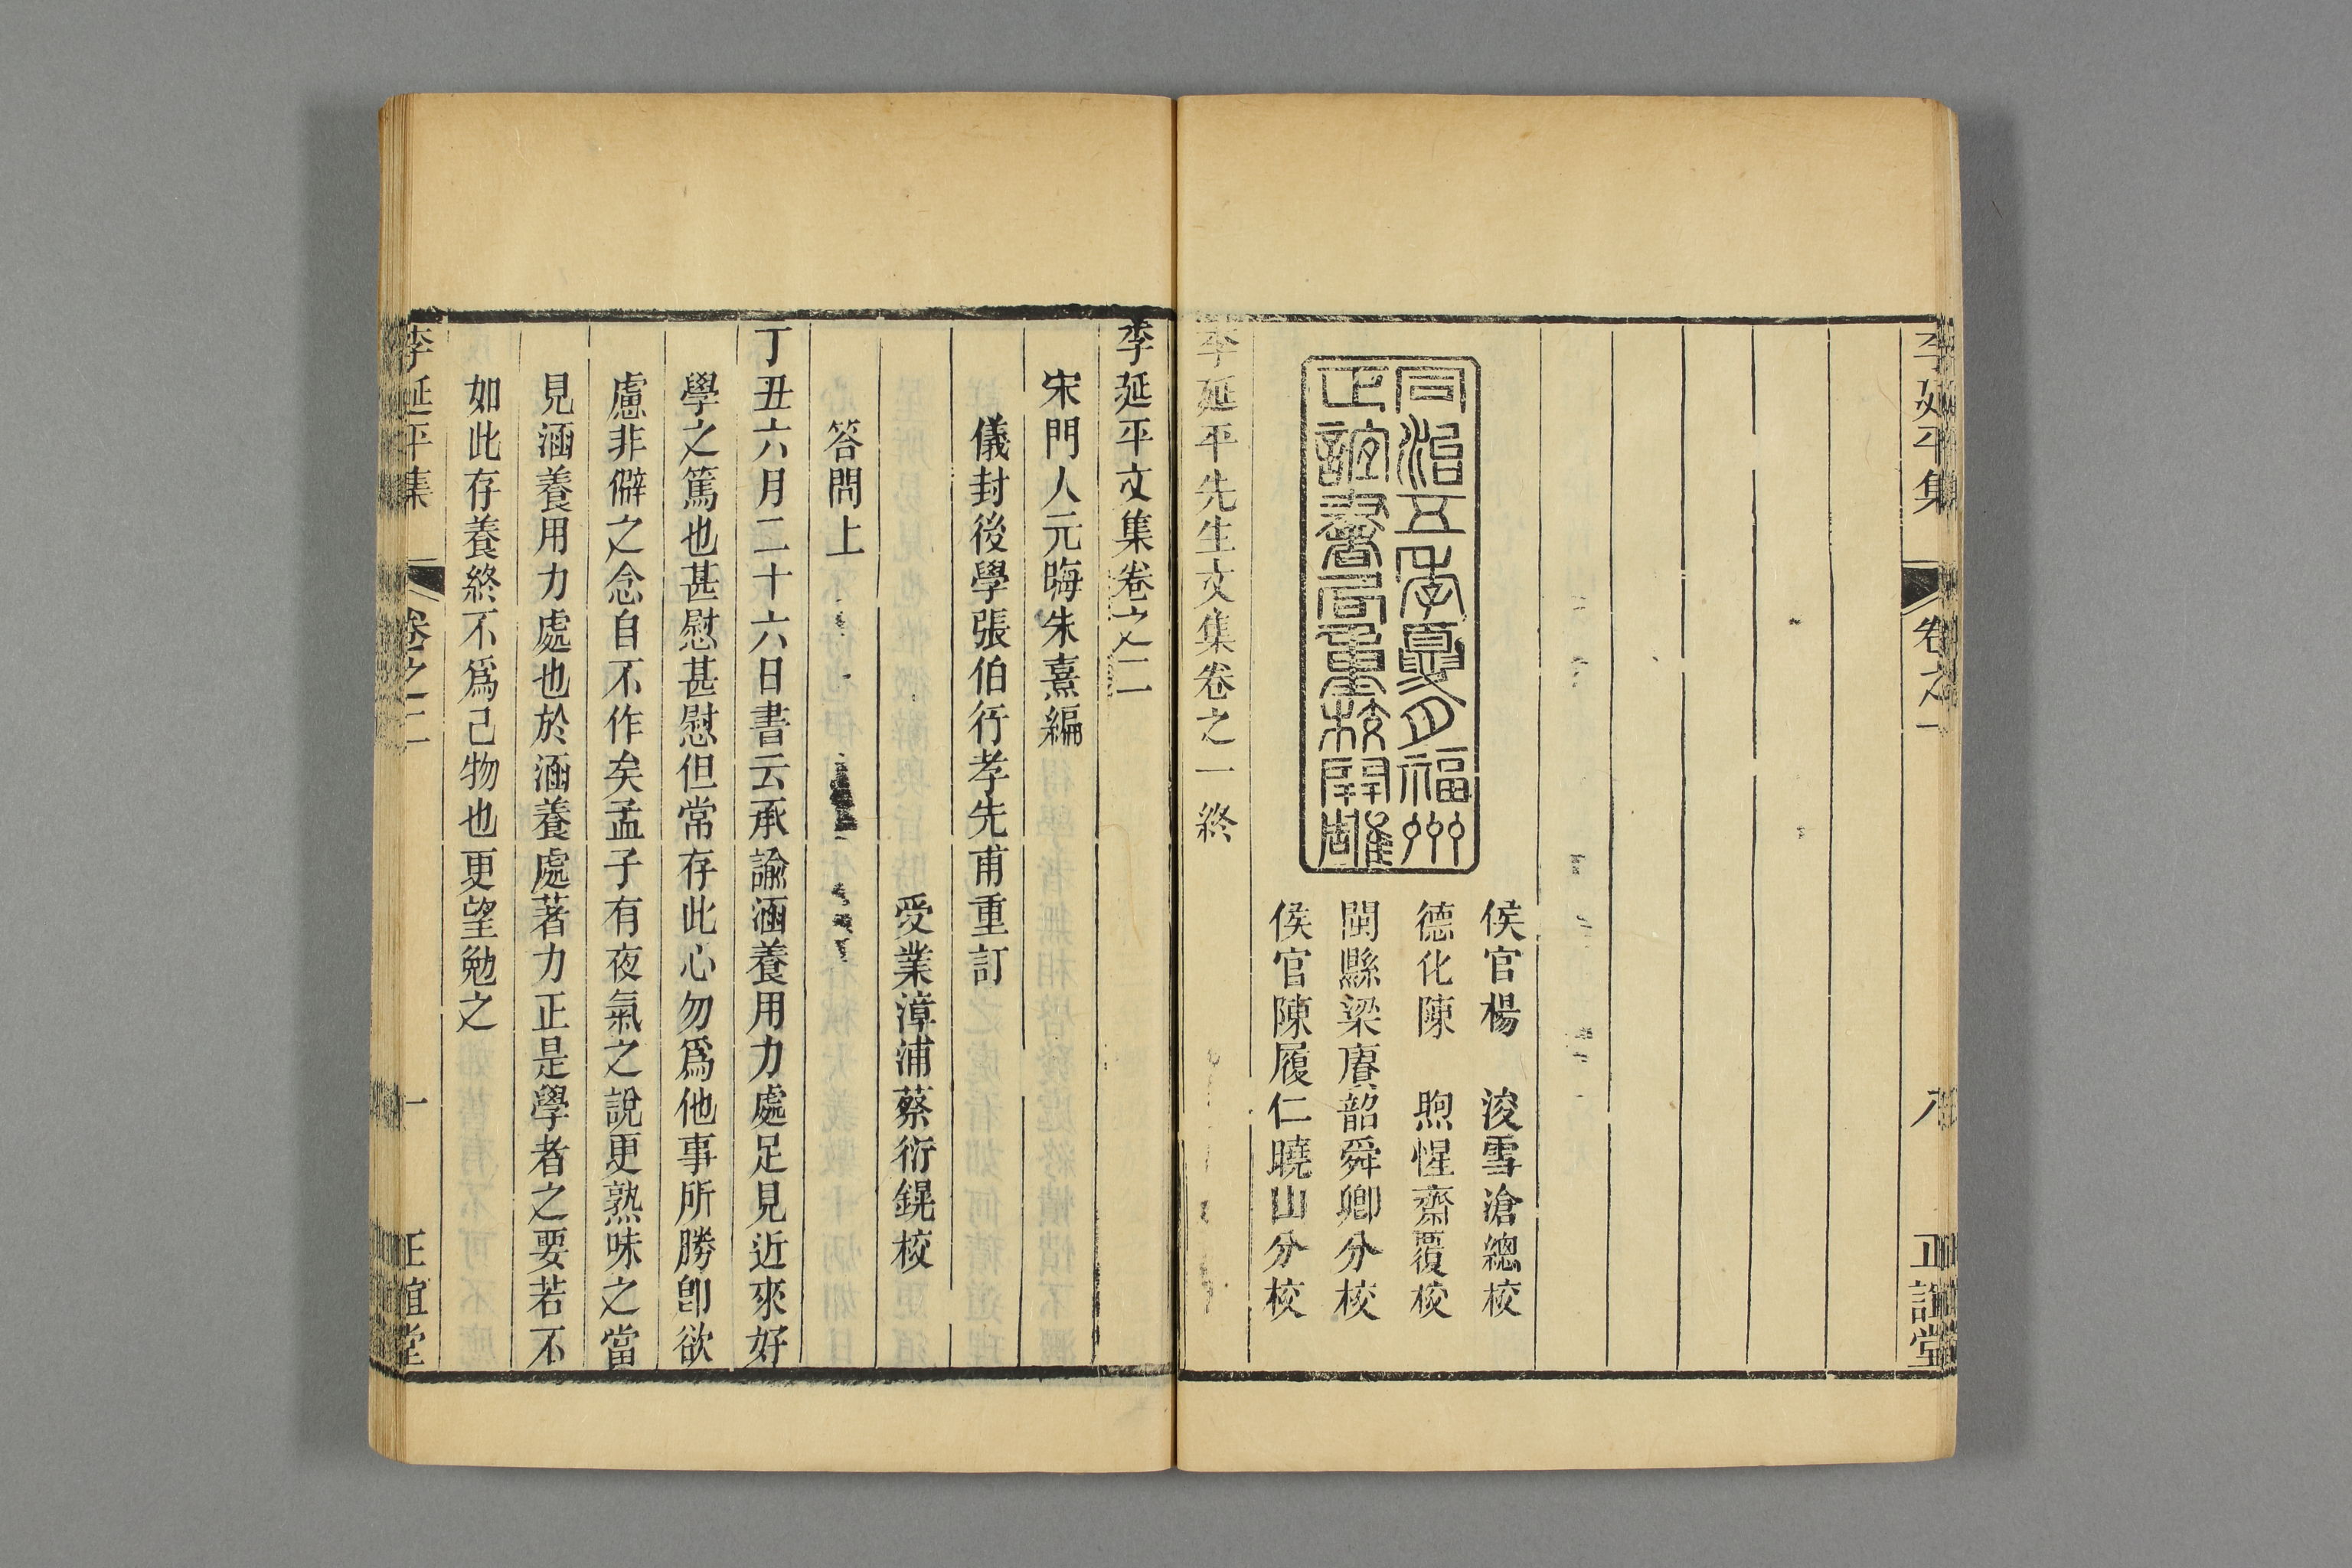 李延平集
卷之一
八
正誼堂
侯官楊 浚雪滄總校
德化陳 煦惺齋覆校
閩縣梁賡韶舜卿分校
侯官陳履仁曉山分校
同治五年夏月福州
正誼書局重校開雕
李延平先生文集卷之一終
李延平文集卷之二
宋門人元晦朱熹編
儀封後學張伯行孝先甫重訂
受業漳浦蔡衍鎤校
答問上
丁丑六月二十六日書云承諭涵養用力處足見近來好
學之篤也甚慰甚慰但常存此心勿爲他事所勝卽欲
慮非僻之念自不作矣孟子有夜氣之說更熟味之當
見涵養用力處也於涵養處著力正是學者之要若不
如此存養終不爲己物也更望勉之
李延平集
卷之二
一
正誼堂